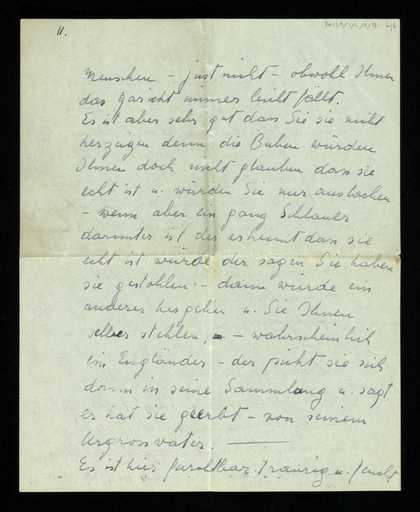 11.
Menschen – just nicht – obwohl Ihnen
das Gesicht immer leicht fällt.
Es ist aber sehr gut dass Sie sie nicht
herzeigen denn die Buben würden
Ihnen doch nicht glauben dass sie
echt ist u. würden Sie nur auslachen
– wenn aber ein ganz Schlauer
darunter ist der erkennt dass sie
echt ist würde der sagen Sie haben
sie gestohlen – dann würde ein
anderer hergehen u. Sie Ihnen
selber stehlen, – wahrscheinlich
ein Engländer – der pickt sie sich
dann in seine Sammlung u. sagt
er hat sie geerbt – von seinem
Urgrossvater.
Es ist hier furchtbar traurig u. feucht